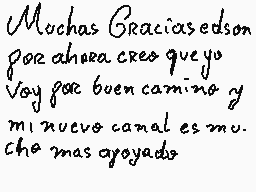 Muchas Gracias edson
por ahora creo que yo
voy por buen camino y
mi nuevo canal es mu-
cho mas apoyado